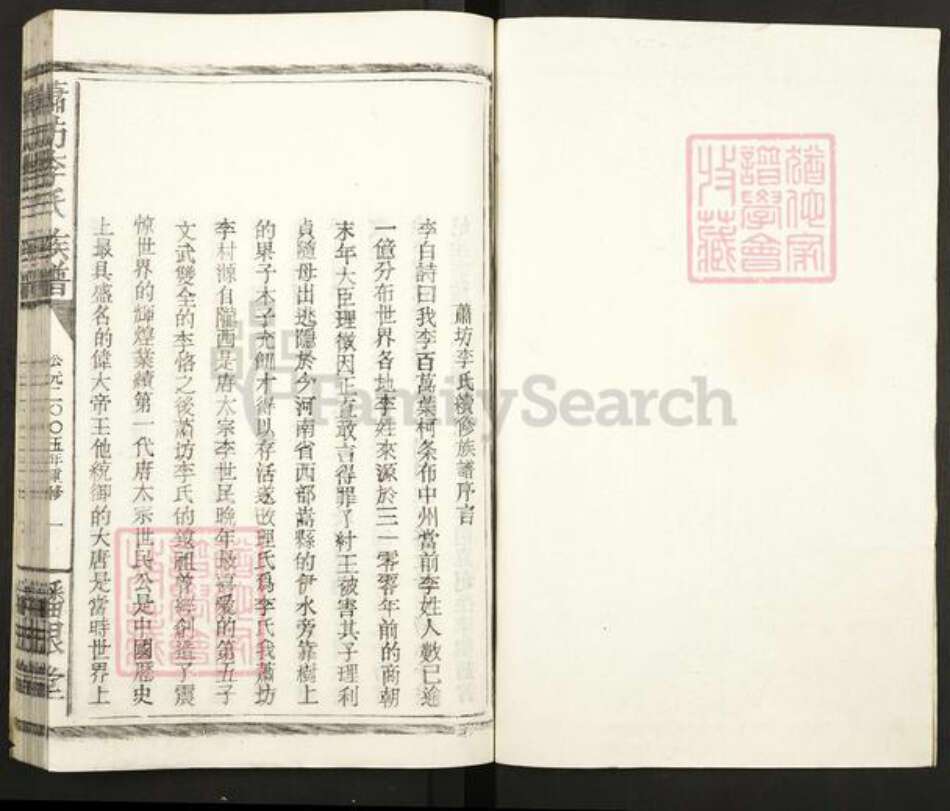 蕭坊李氏續修族譜序言
李白詩曰我李百萬葉柯条布中州當前李姓人數已逾
一億分布世界各地李姓來源於三一零零年前的商朝
末年大臣理徵因正直敢言得罪了紂王被害其子理利
貞隨母出逃隱於今河南省西部嵩縣的伊水旁靠樹上
的果子木子充飢才得以存活遂改理氏爲李氏我蕭坊
李村源自隴西是唐太宗李世民晩年最喜愛的第五子
文武雙全的李恪之後蕭坊李氏的遠祖曾經創造了震
惊世界的輝煌業績第一代唐太宗世民公是中國歷史
上最具盛名的偉大帝王他統御的大唐是當時世界上
蕭坊李氏 族譜
公元二〇〇五年重修
一
蟠根堂
FamilySearch
猶他家
譜學會
收藏
猶他家
譜學會
收藏